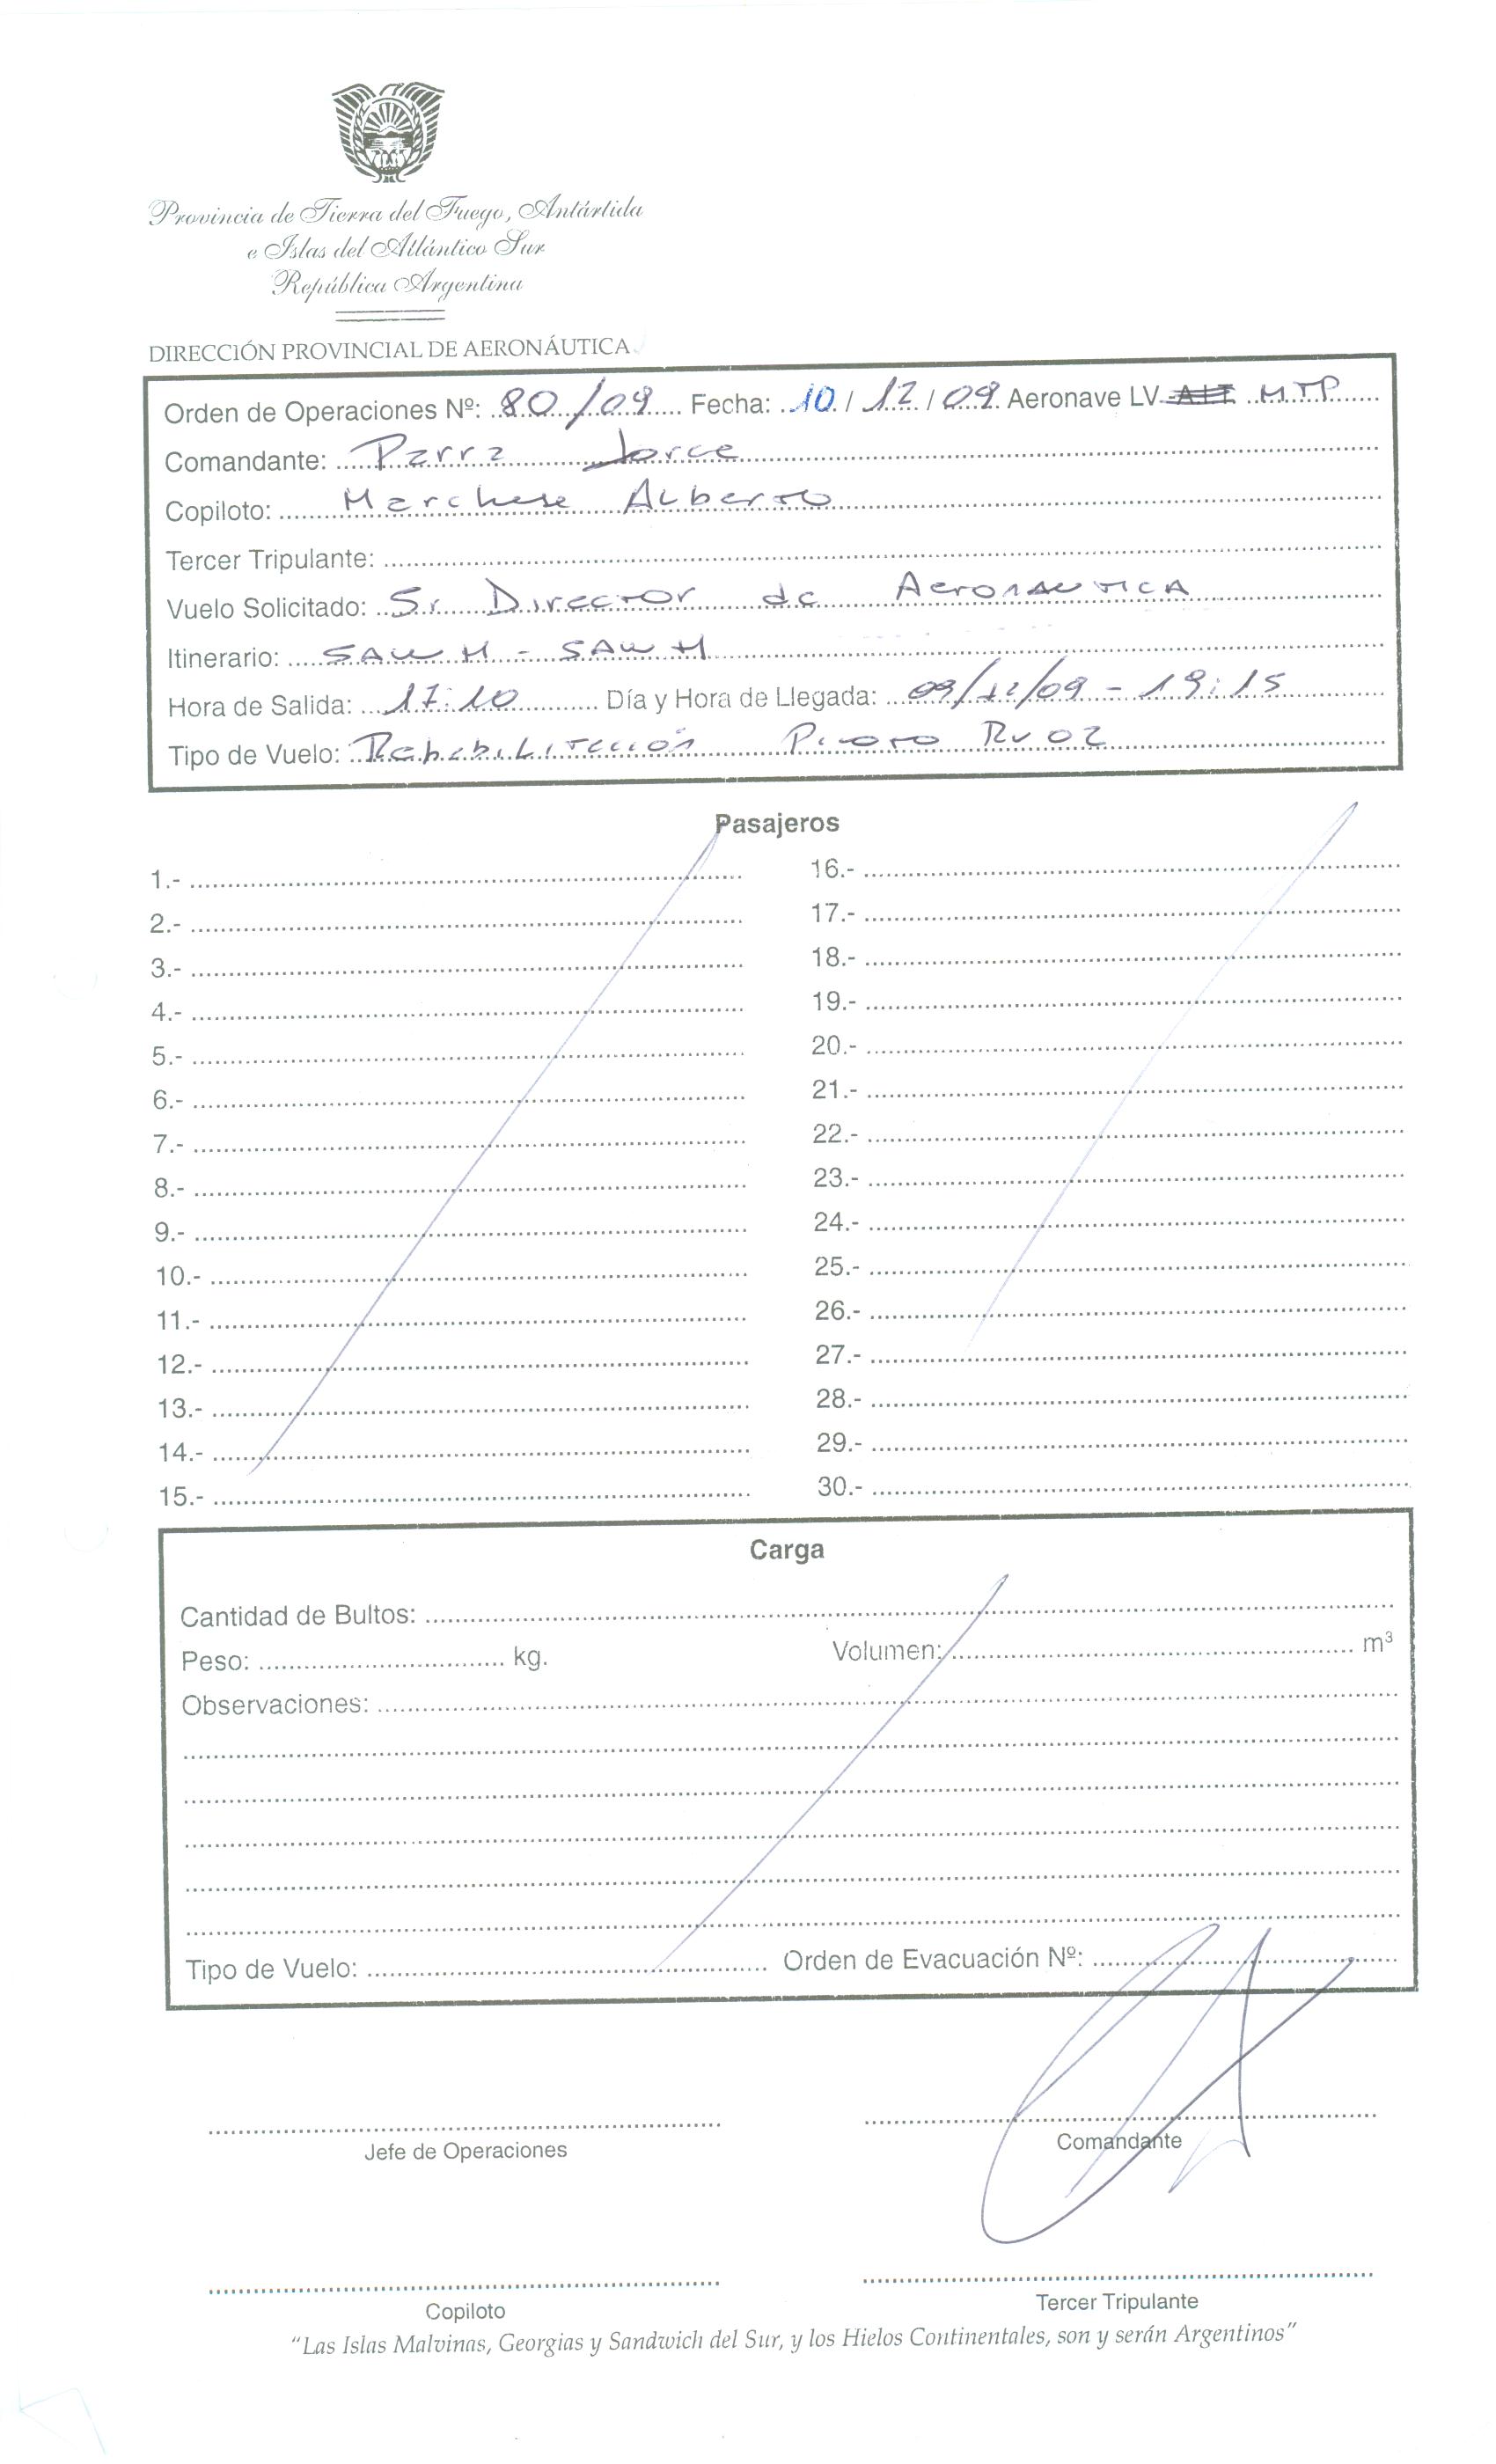 Provincia de Tierra del Fuego, Antártida
e Islas del Atlántico Sur
República Argentina
DIRECCIÓN PROVINCIAL DE AERONÁUTICA
Orden de Operaciones Nº: 80/09 Fecha: 10/12/09 Aeronave LV MTP
Comandante: Parra Jorge
Copiloto: Marchese Alberto
Tercer Tripulante:
Vuelo Solicitado: Sr Director de Aeronautica
Itinerario: SAWH - SAWH
Hora de Salida: 17:10 Día y Hora de Llegada: 09/12/09 - 19:15
Tipo de Vuelo: Rehabilitación Piloto
Pasajeros
1.- 16.-
2.- 17.-
3.- 18.-
4.- 19.-
5.- 20.-
6.- 21.-
7.- 22.-
8.- 23.-
9.- 24.-
10.- 25.-
11.- 26.-
12.- 27.-
13.- 28.-
14.- 29.-
15.- 30.-
Carga
Cantidad de Bultos:
Peso: kg. Volumen: m³
Observaciones:
Tipo de Vuelo: Orden de Evacuación Nº:
Jefe de Operaciones Comandante
Copiloto Tercer Tripulante
"Las Islas Malvinas, Georgias y Sandwich del Sur, y los Hielos Continentales, son y serán Argentinos"